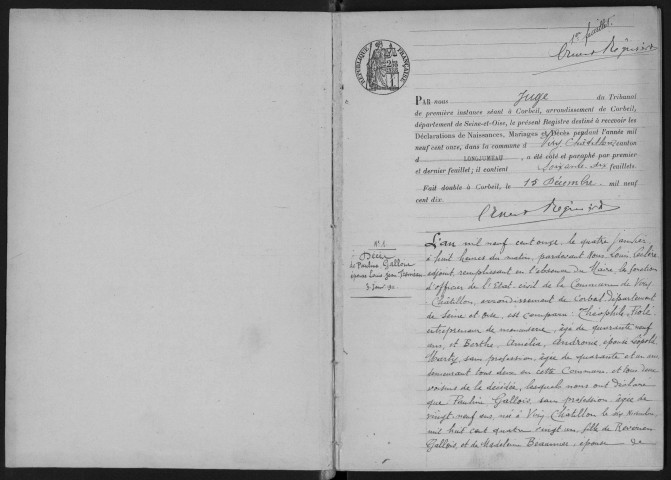 1er feuillet.
RÉPUBLIQUE FRANÇAISE
PAR nous Juge du Tribunal
de première instance séant à Corbeil, arrondissement de Corbeil,
département de Seine-et-Oise, le présent Registre destiné à recevoir les
Déclarations de Naissances, Mariages et Décès pendant l'année mil
neuf cent onze, dans la commune d Viry Châtillon canton
d LONGJUMEAU, a été coté et paraphé par premier
et dernier feuillet; il contient soixante dix feuillets.
Fait double à Corbeil, le 15 Décembre mil neuf
cent dix.
N° 1
Décès
de Pauline Gallois
épouse Louis Jean
3 Janvier
L'an mil neuf cent onze, le quatre Janvier
à huit heures du matin, pardevant nous Louis
adjoint, remplissant en l'absence du Maire, les fonctions
d'officier de l'Etat-civil de la Commune de Viry
Châtillon, arrondissement de Corbeil, département
de Seine et Oise, est comparu: Théophile
entrepreneur de menuiserie, âgé de quarante neuf
ans, et Berthe, Amélie, épouse Léopold
Marly, sans profession, âgée de quarante et un ans
demeurant tous deux en cette Commune et tous deux
voisins de la décédée, lesquels nous ont déclaré
que Pauline Gallois, sans profession, âgée de
vingt-neuf ans, née à Viry Châtillon le dix Novembre
mil huit cent quatre vingt un, fille de
Gallois, et de Madeleine Beaumier, épouse de